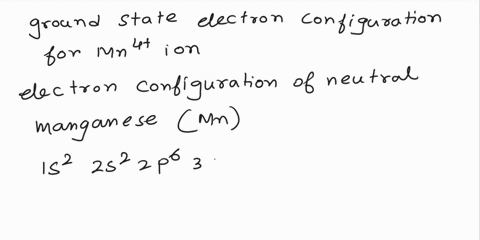 ground state electron configuration
for Mn⁴⁺ ion
electron configuration of neutral
manganese (Mn)
1s² 2s² 2p⁶ 3